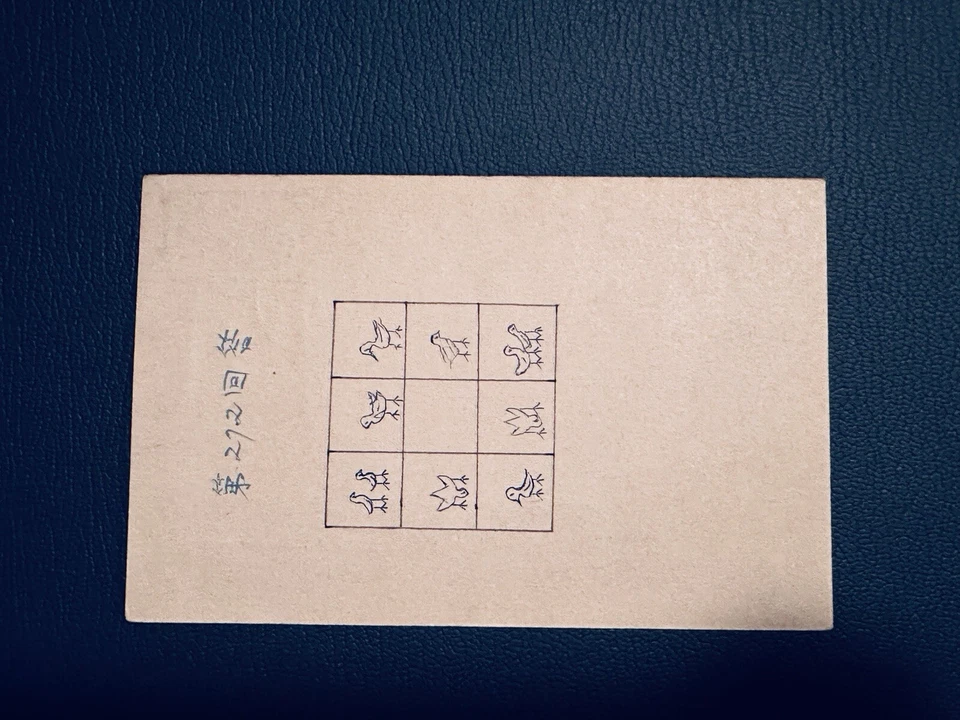 第272回答